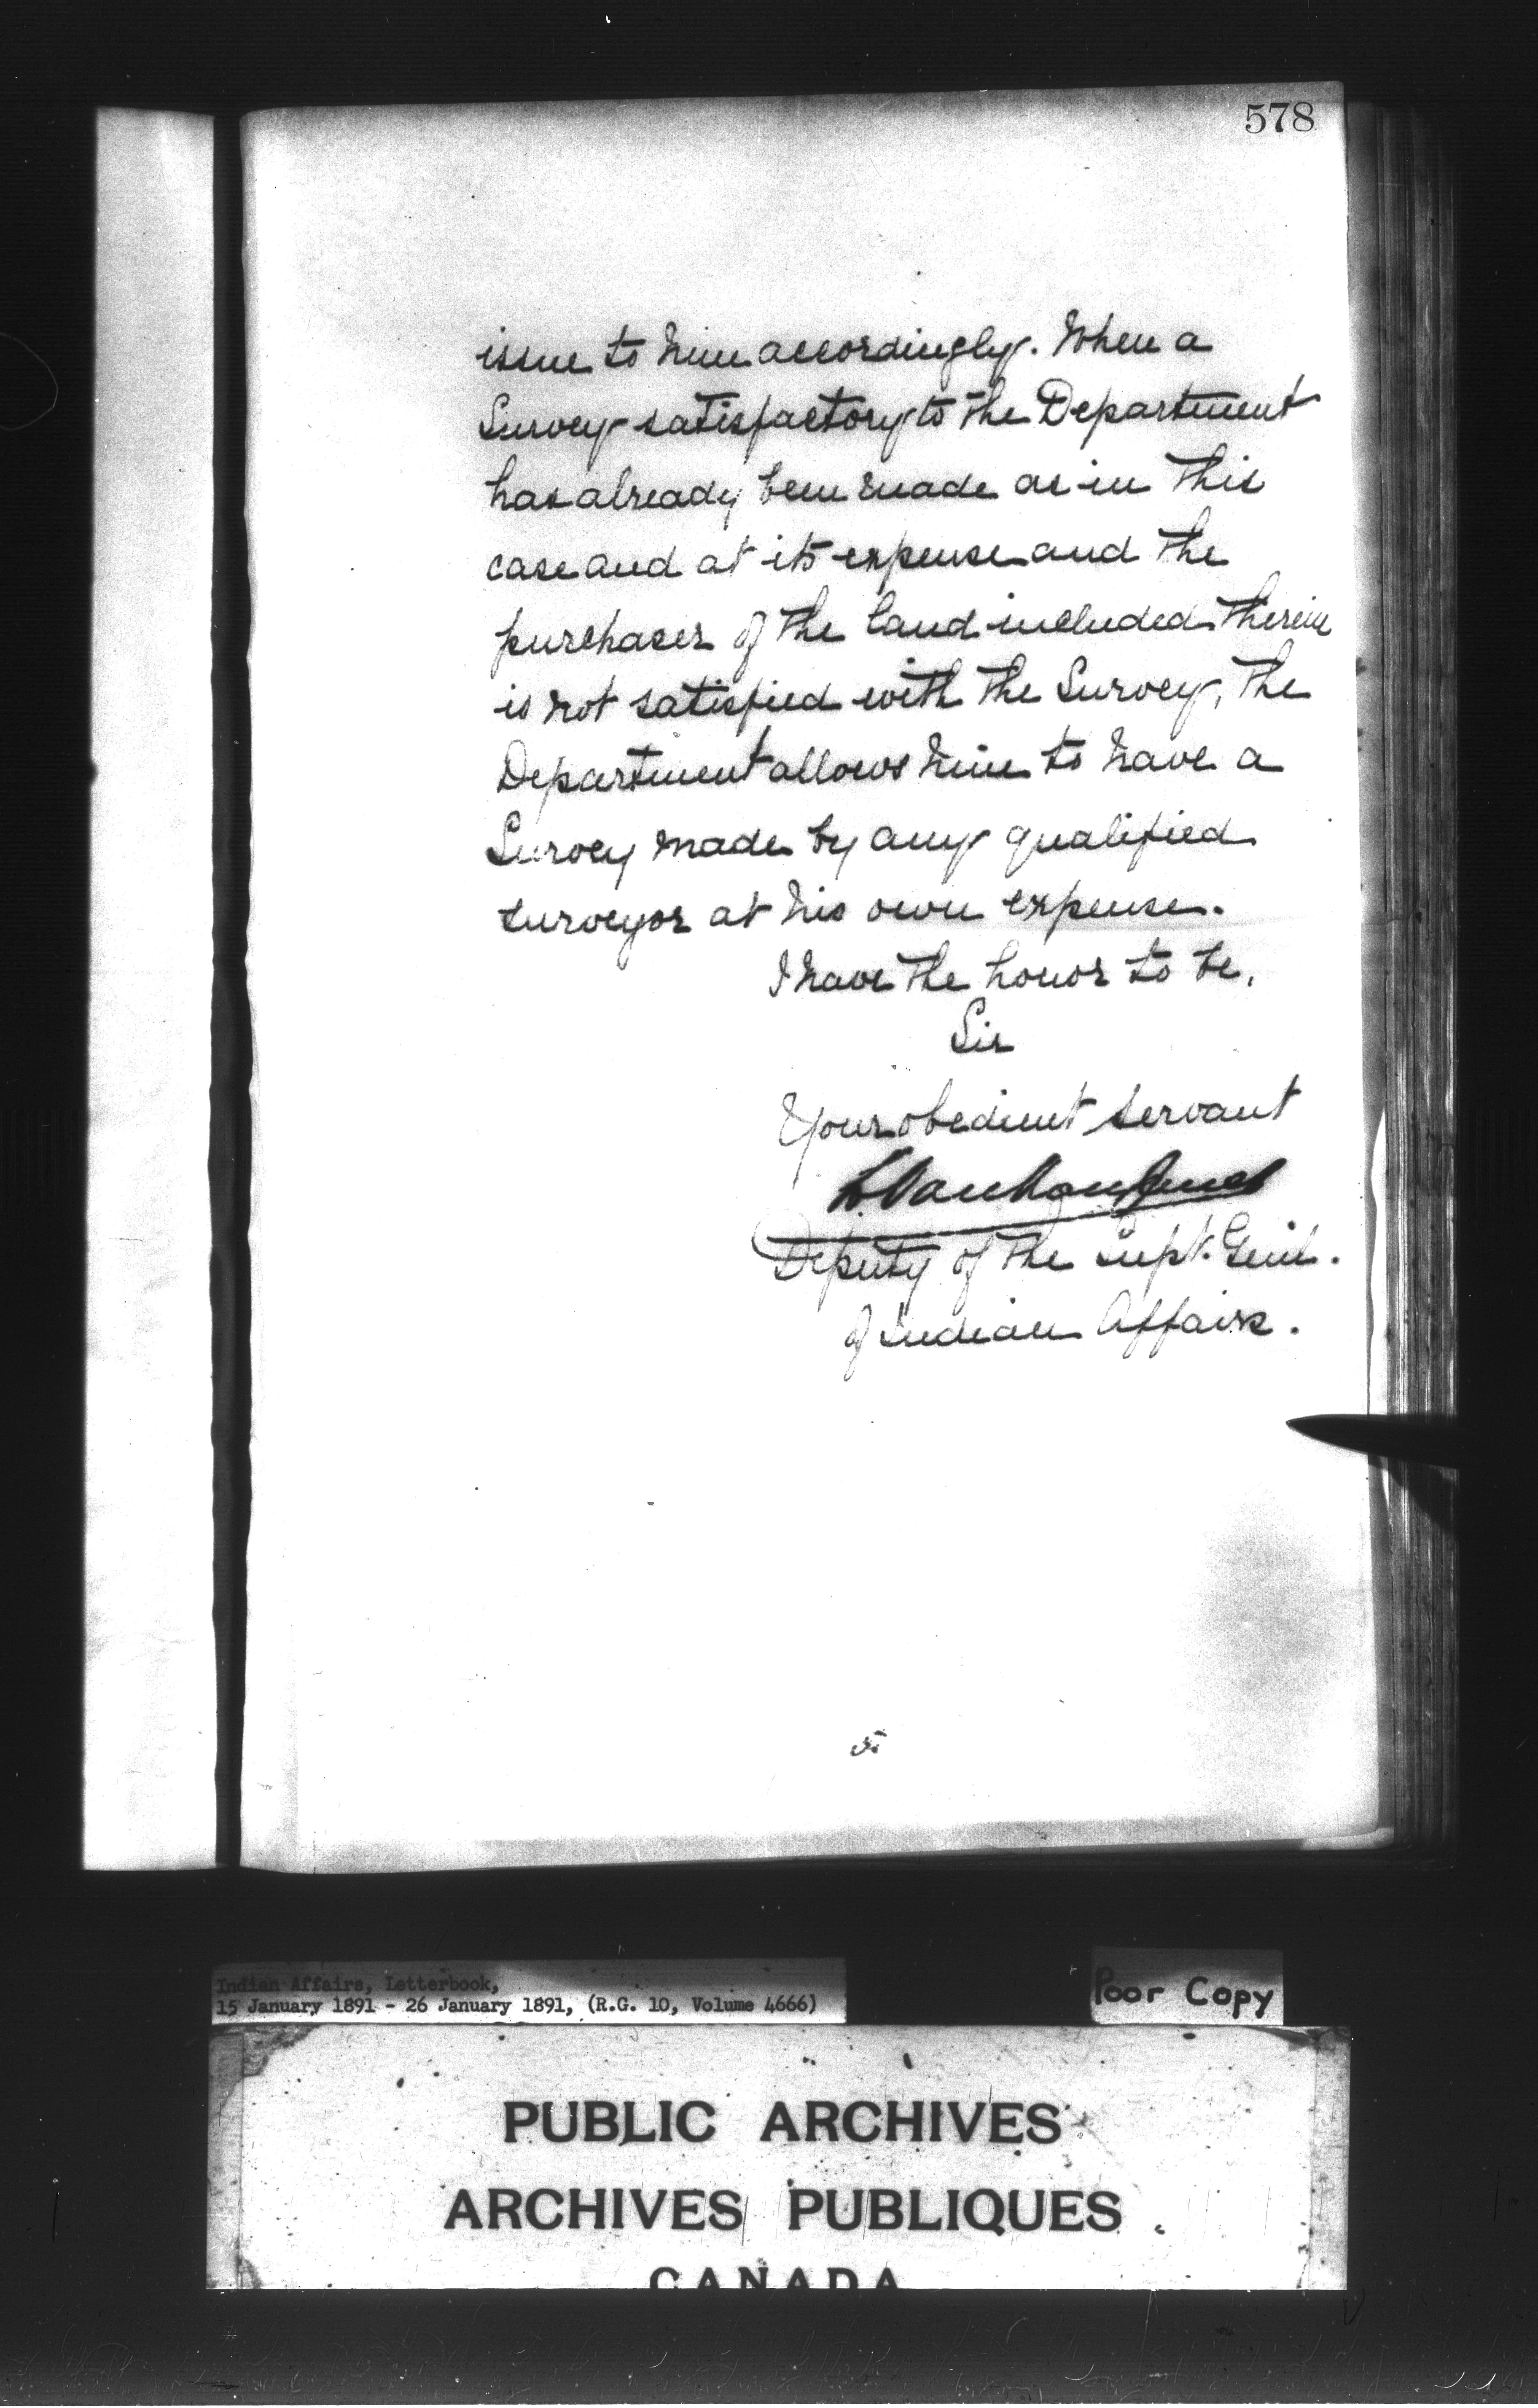 578
issue to him accordingly. When a
Survey satisfactory to the Department
has already been made as in this
case and at its expense and the
purchaser of the land included therein
is not satisfied with the Survey, the
Department allows him to have a
Survey made by any qualified
surveyor at his own expense.
I have the honor to be,
Sir
Your obedient servant
L. Vankoughnet
Deputy of the Supt. Genl.
of Indian Affairs.
Indian Affairs, Letterbook,
15 January 1891 - 26 January 1891, (R.G. 10, Volume 4666)
Poor Copy
PUBLIC ARCHIVES
ARCHIVES PUBLIQUES
CANADA